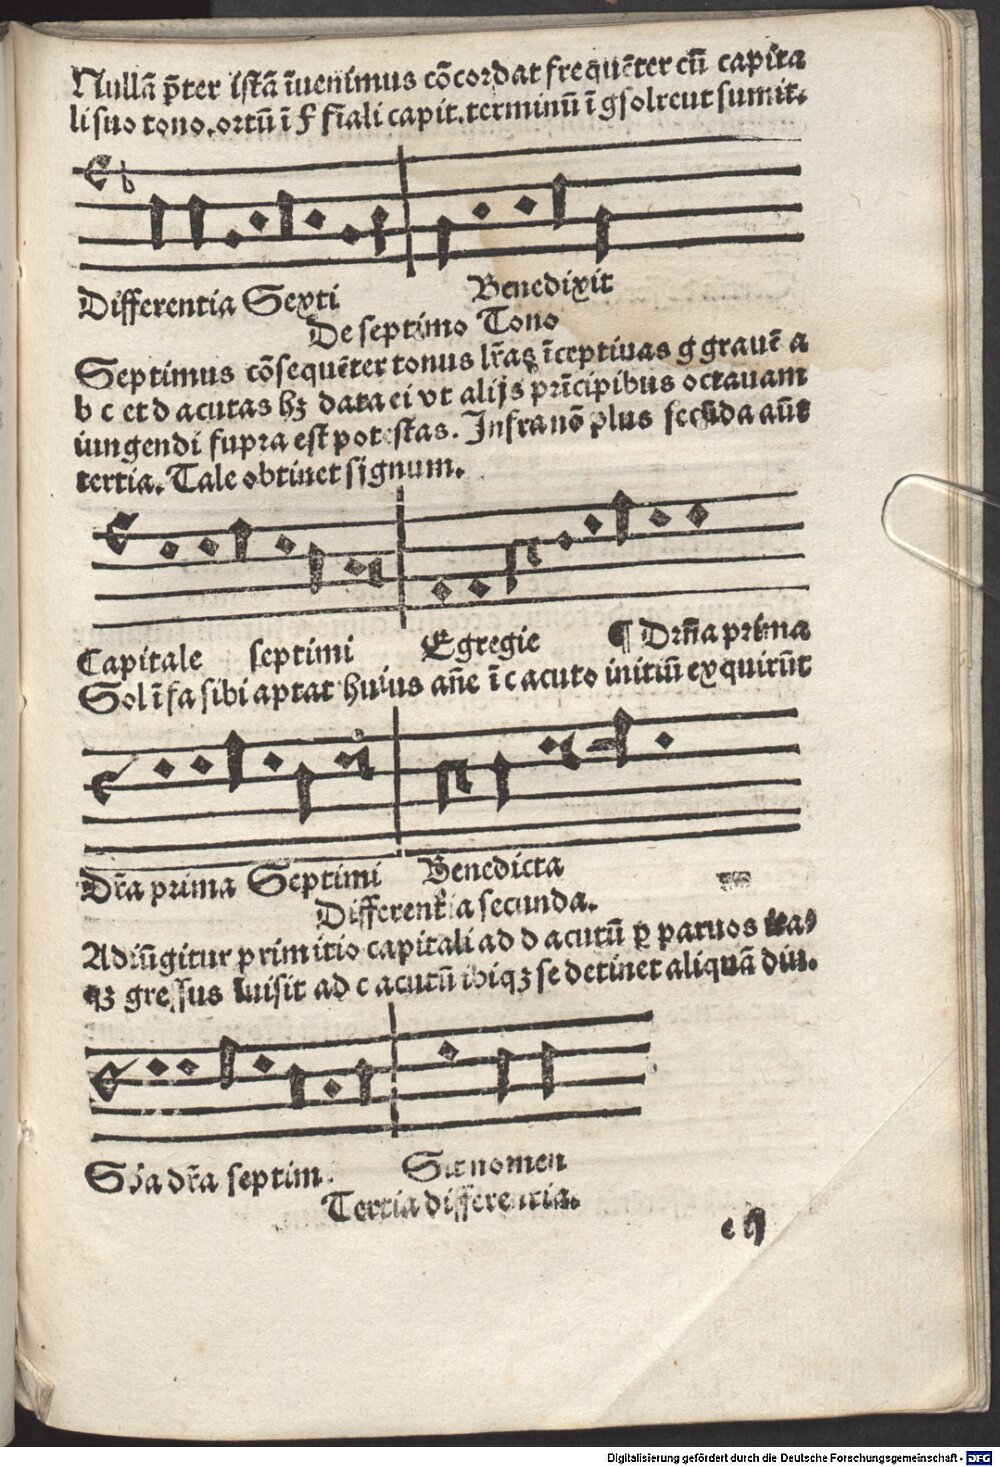 Nullā p̄ter istā īuenimus cōcordat frequēter cū capita
li suo tono. ortū ī F fīali capit. terminū ī gsolreut sumit.
Differentia Sexti Benedixit
De septimo Tono
Septimus cōsequēter tonus lr̄as īceptiuas g grauē a
b c et d acutas hꝫ data ei vt alijs prīcipibus octauam
iungendi supra est potestas. Infra nō plus secūda aūt
tertia. Tale obtinet signum.
Capitale septimi Egregie ¶ Drn̄a prima
Sol ī fa sibi aptat huius añe ī c acuto initiū exquirūt
Dr̄a prima Septimi Benedicta
Differentia secunda.
Adiūgitur primitio capitali ad d acutū ꝑ paruos
qꝫ gressus luisit ad c acutū ibiqꝫ se detinet aliquā diu.
Scd̄a dr̄a septim. Sit nomen
Tertia differentia.
Digitalisierung gefördert durch die Deutsche Forschungsgemeinschaft - DFG